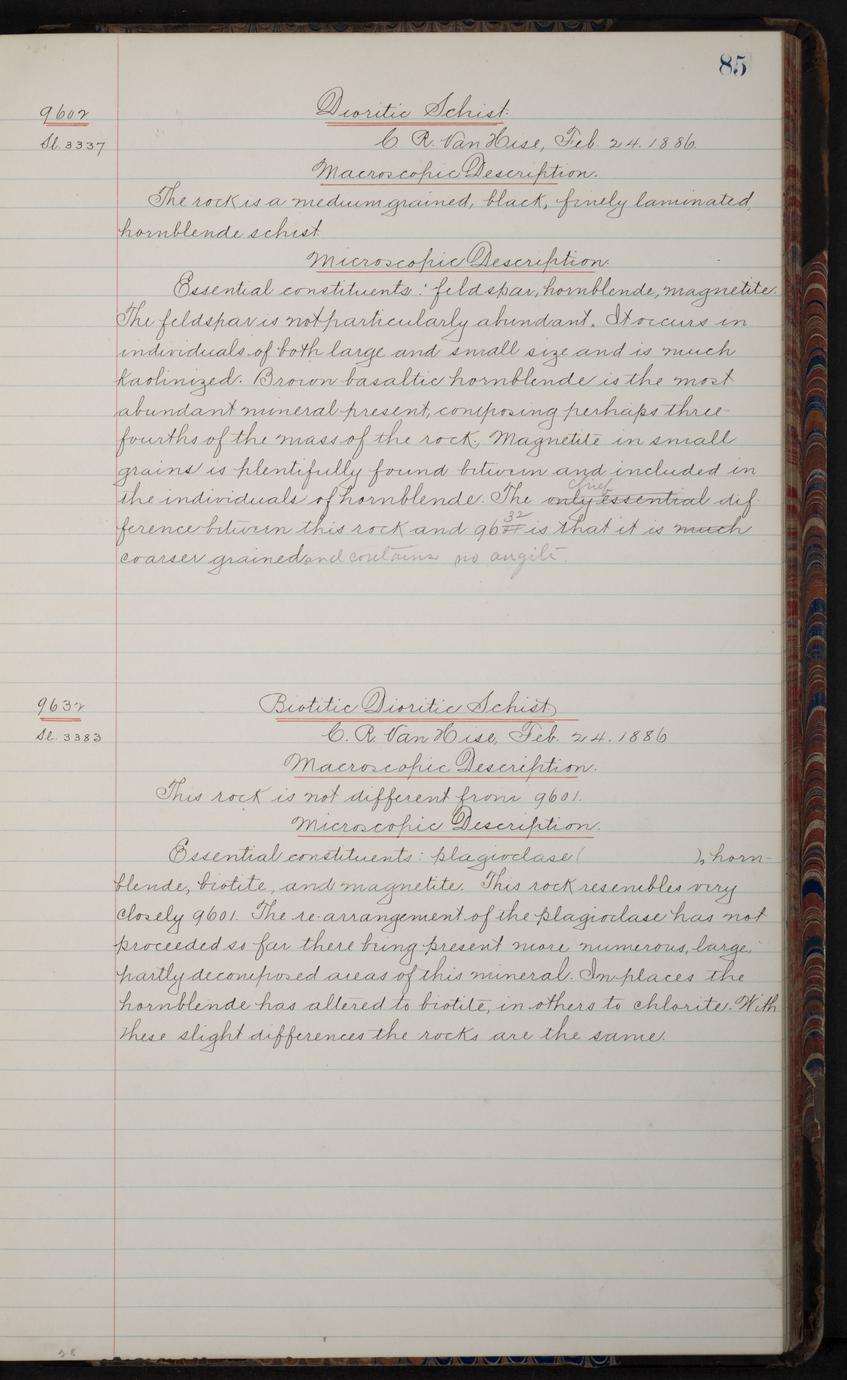 85
9602
Dioritic Schist.
Sl. 3337
C. R. Van Hise, Feb. 24. 1886.
Macroscopic Description.
The rock is a medium grained, black, finely laminated,
hornblende schist.
Microscopic Description.
Essential constituents: feldspar, hornblende, magnetite.
The feldspar is not particularly abundant. It occurs in
individuals of both large and small size and is much
kaolinized. Brown basaltic hornblende is the most
abundant mineral present, composing perhaps three-
fourths of the mass of the rock, Magnetite in small
grains is plentifully found between and included in
chief
the individuals of hornblende. The only essential dif-
32
ference between this rock and 96 is that it is much
coarser grained and contains no augite.
9632
Biotitic Dioritic Schist.
Sl. 3383
C. R. Van Hise, Feb. 24. 1886
Macroscopic Description.
This rock is not different from 9601.
Microscopic Description.
Essential constituents: plagioclase ( ), horn-
blende, biotite, and magnetite. This rock resembles very
closely 9601. The re-arrangement of the plagioclase has not
proceeded so far there being present more numerous, large,
partly decomposed areas of this mineral. In places the
hornblende has altered to biotite, in others to chlorite. With
these slight differences the rocks are the same.